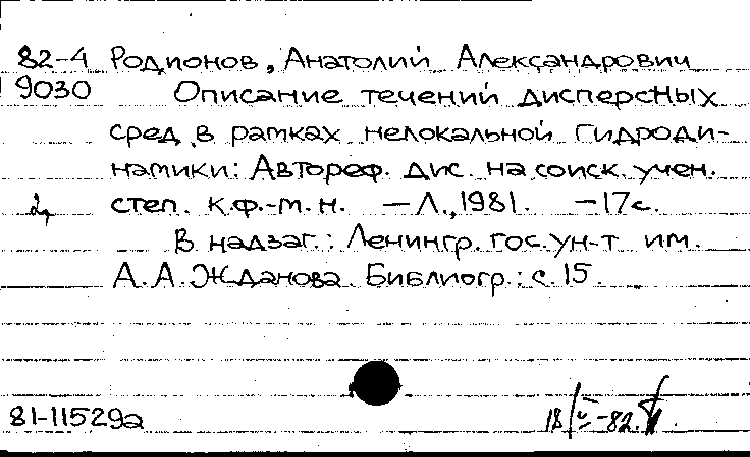 82-4 Родионов, Анатолий Александрович
9030 Описание течений дисперсных
сред в рамках нелокальной гидроди-
намики: Автореф. дис. на соиск. учен.
степ. к.ф.-м.н. — Л., 1981. — 17с.
В надзаг.: Ленингр. гос. ун-т им.
А.А. Жданова. Библиогр.: с. 15.
81-11529а